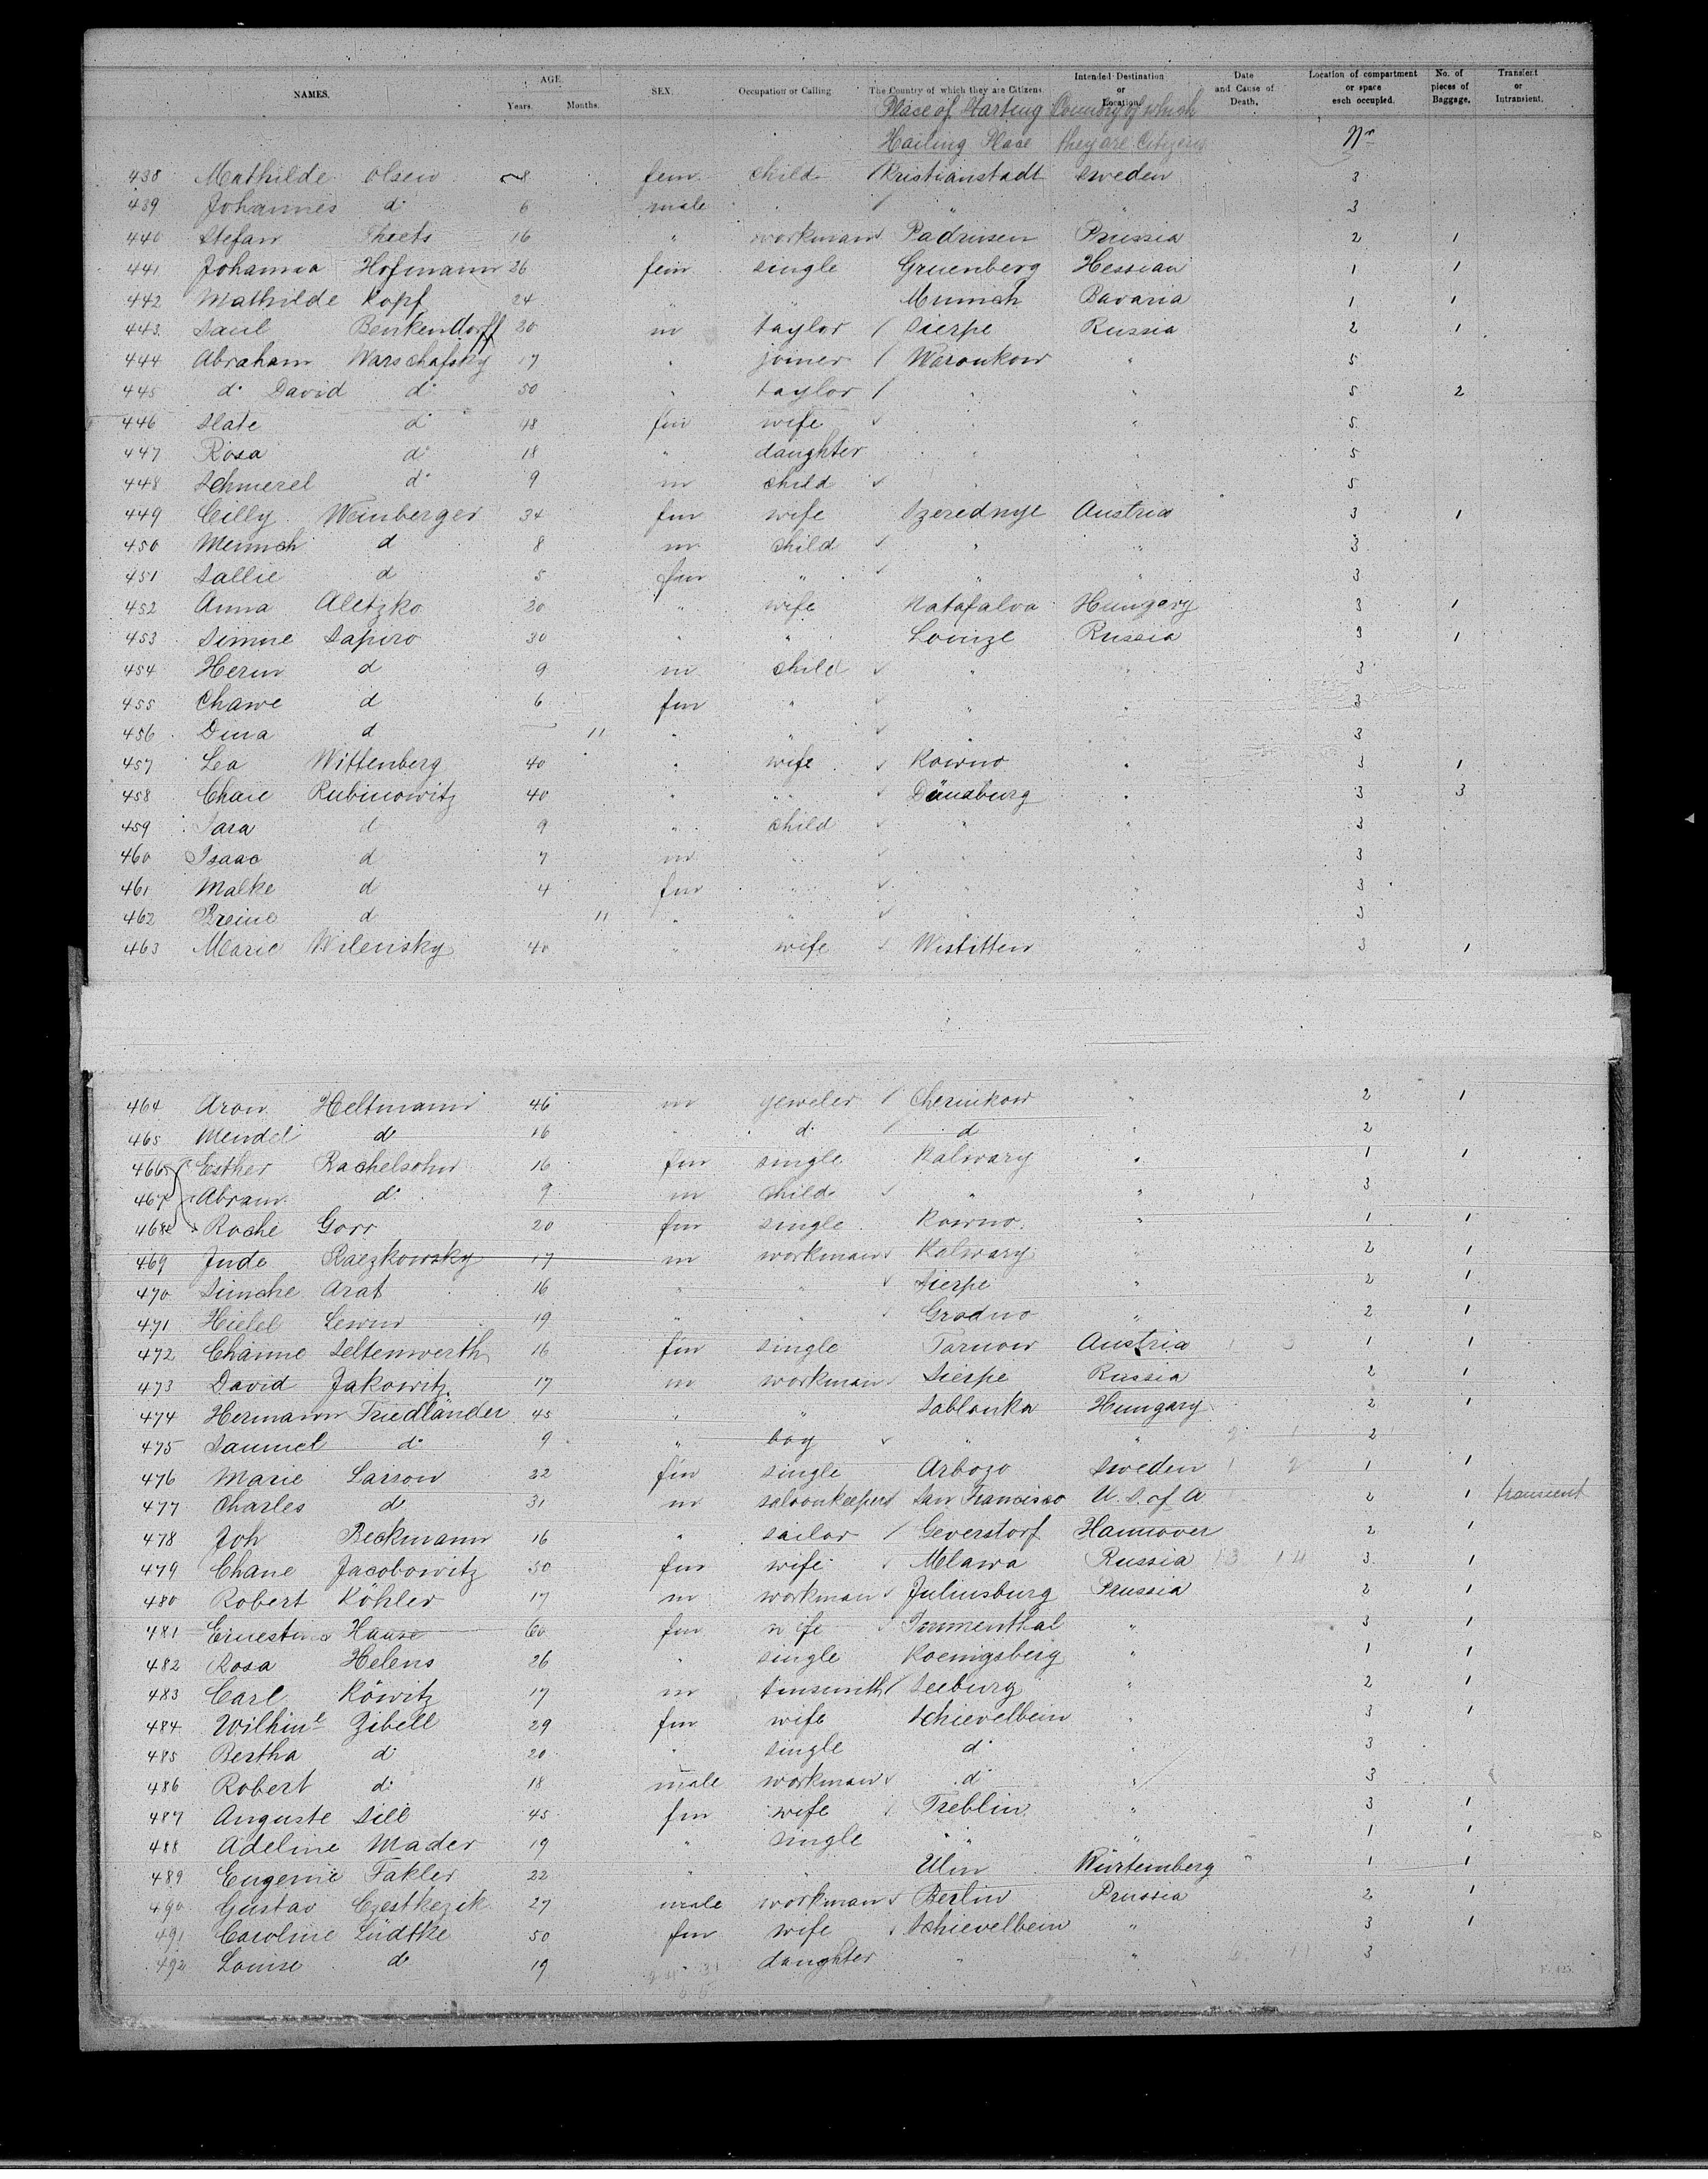 NAMES. AGE. Years. Months. SEX. Occupation or Calling. The Country of which they are Citizens. Intended Destination or Location. Date and Cause of Death. Location of compartment or space each occupied. No. of pieces of Baggage. Transient or Intransient.
Place of Starting Country of which
Hailing Place they are Citizens Nr
438 Mathilde Olsen 8 fem child Kristianstadt Sweden 3
439 Johannes do 6 male " " 3
440 Stefan Theets 16 " workman Padrusen Prussia 2 1
441 Johanna Hofmann 26 fem single Gruenberg Hessian 1 1
442 Mathilde Kopf 24 " " Munich Bavaria 1 1
443 Saul Benkendorff 20 m taylor Sierpe Russia 2 1
444 Abraham Warschafsky 17 " joiner Woronkow " 5
445 do David do 50 " taylor " " 5 2
446 Slate do 48 fm wife " " 5
447 Rosa do 18 " daughter " " 5
448 Schmerel do 9 m child " " 5
449 Cilly Weinberger 34 fm wife Szerednye Austria 3 1
450 Meinich d 8 m child " " 3
451 Sallie d 5 fm " " " 3
452 Anna Aletzko 20 " wife Natafalva Hungary 3 1
453 Simne Sapiro 30 " " Lomze Russia 3 1
454 Herm d 9 m child " " 3
455 Chawe d 6 fm " " " 3
456 Dina d 11 " " " 3
457 Lea Wittenberg 40 " wife Kowno " 3 1
458 Chaie Rubinowitz 40 " " Dünaburg " 3 3
459 Sara d 9 " child " " 3
460 Isaac d 7 m " " " 3
461 Malke d 4 fm " " " 3
462 Breine d 11 " " " " 3
463 Marie Wilensky 40 " wife Wistitten " 3 1
464 Aron Heltmann 46 m jeweler Chernikow " 2 1
465 Mendel do 16 " d d " 2
466 Esther Rachelsohn 16 fm single Kalwary " 1 1
467 Abram do 9 m child " " 3
468 Roche Gorr 20 fm single Kowno " 1 1
469 Jude Raczkowsky 17 m workman Kalwary " 2 1
470 Simche Arat 16 " " Sierpe " 2 1
471 Hielel Lewin 19 " " Grodno " 2 1
472 Channe Seltenwerth 16 fm single Tarnow Austria 1 1
473 David Jakowitz 17 m workman Sierpe Russia 2 1
474 Hermann Friedländer 45 " " Jablonka Hungary 2 1
475 Samuel do 9 " boy " " 2
476 Marie Larson 22 fm single Arbogo Sweden 1 1
477 Charles do 31 m saloonkeeper San Francisco U. S. of A 2 1 transient
478 Joh Beckmann 16 " sailor Geverstorf Hannover 2 1
479 Chane Jacobowitz 50 fm wife Mlawa Russia 3 1
480 Robert Köhler 17 m workman Juliusburg Prussia 2 1
481 Ernestine Hause 60 fm wife Tommenthal " 3 1
482 Rosa Helens 26 " single Koenigsberg " 1 1
483 Carl Köwitz 17 m tinsmith Seeburg " 2 1
484 Wilhine Zibell 29 fm wife Schievelbein " 3 1
485 Bertha do 20 " single d " 3
486 Robert do 18 male workman d " 3
487 Auguste Sill 45 fm wife Treblin " 3 1
488 Adeline Mader 19 " single " " 1 1
489 Eugenie Fakler 22 " " Ulm Würtemberg 1 1
490 Gustav Czestkezik 27 male workman Berlin Prussia 2 1
491 Caroline Lüdtke 50 fm wife Schievelbein " 3 1
492 Louise do 19 " daughter " " 3